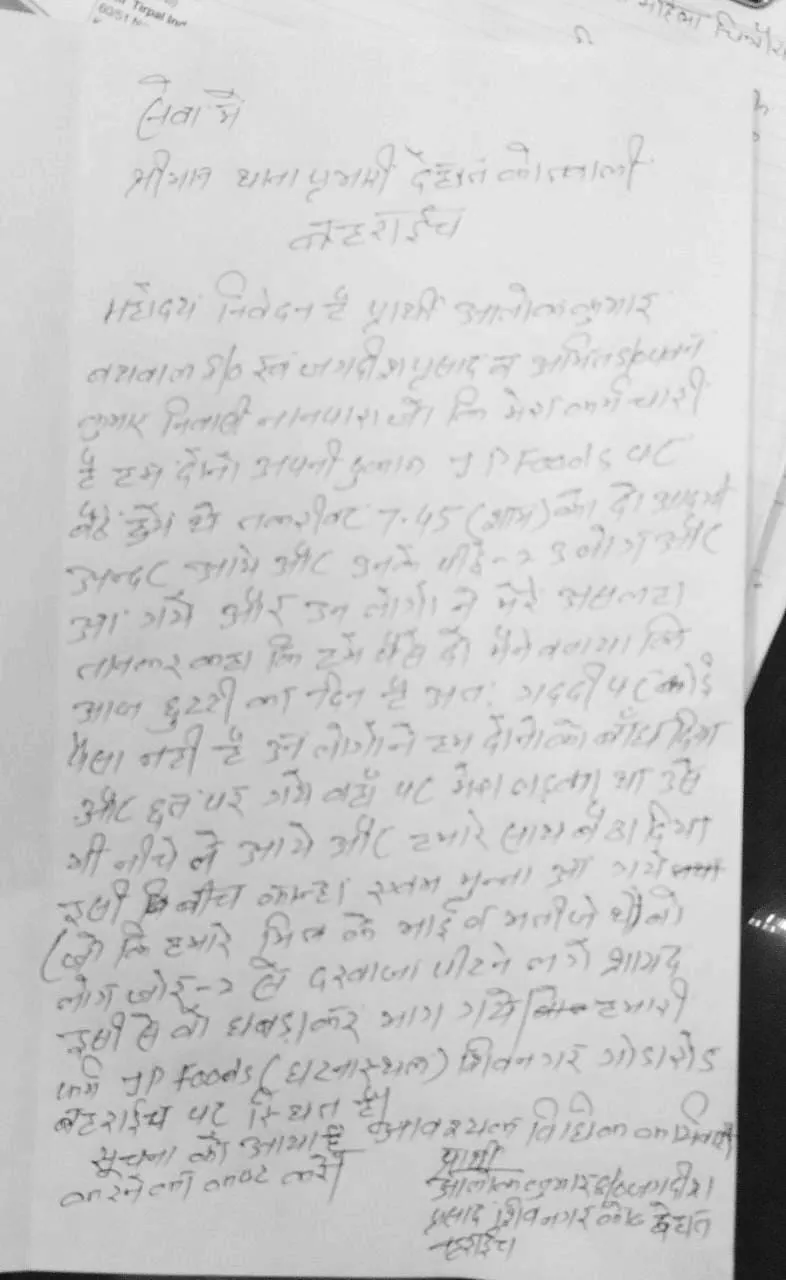 Tirpal
60/51
सेवा में
श्रीमान थाना प्रभारी देहात कोतवाली
बहराईच
महोदय निवेदन है प्रार्थी आलोक कुमार
S/o स्व जगदीश प्रसाद व अमित S/o
कुमार निवासी नानपारा जो कि मेरा कर्मचारी
है हम दोनो अपनी दुकान J P Foods पर
बैठे हुये थे तकरीबन 7.45 (शाम) को दो आदमी
अन्दर आये और उनके पीछे-2 3 लोग और
आ गये और उन लोगो ने मेरे असलहा
लगाकर कहा कि हमे पैसे दो मैने बताया कि
आज छुट्टी का दिन है अतः गददी पर कोई
पैसा नही है उन लोगोने हम दोनो को बाँध दिया
और छत पर गये वहाँ पर मेरा लड़का था उसे
भी नीचे ले आये और हमारे साथ बैठा दिया
इसी बीच कान्हा मुन्ना आ गये
(जो कि हमारे मित्र के भाई व भतीजे थे) वो
लोग जोर-2 से दरवाजा पीटने लगे शायद
इसी से वो घबड़ाकर भाग गये हमारी
फर्म J P Foods (घटनास्थल) शिवनगर गोंडा रोड
बहराईच पर स्थित है।
सूचना को आया है आवश्यक विधिक कार्यवाही
करने का कष्ट करें
प्रार्थी
आलोक कुमार S/o जगदीश
प्रसाद शिवनगर को० देहात
बहराईच